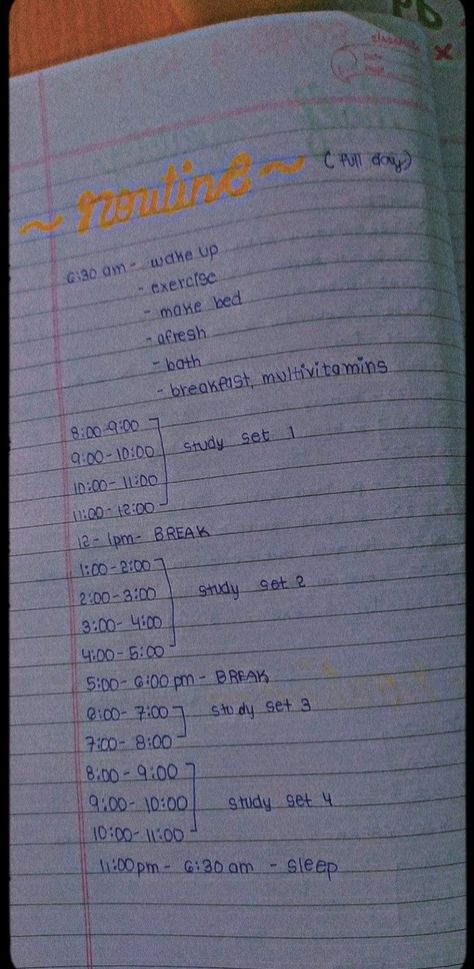 Pd
classmate
Date
Page
~ routine ~ (full day)
6:30 am - wake up
- exercise
- make bed
- afresh
- bath
- breakfast, multivitamins
8:00-9:00
9:00-10:00 study set 1
10:00-11:00
11:00-12:00
12-1pm- BREAK
1:00-2:00
2:00-3:00 study set 2
3:00-4:00
4:00-5:00
5:00-6:00 pm - BREAK
6:00-7:00 study set 3
7:00-8:00
8:00-9:00
9:00-10:00 study set 4
10:00-11:00
11:00pm - 6:30 am - sleep